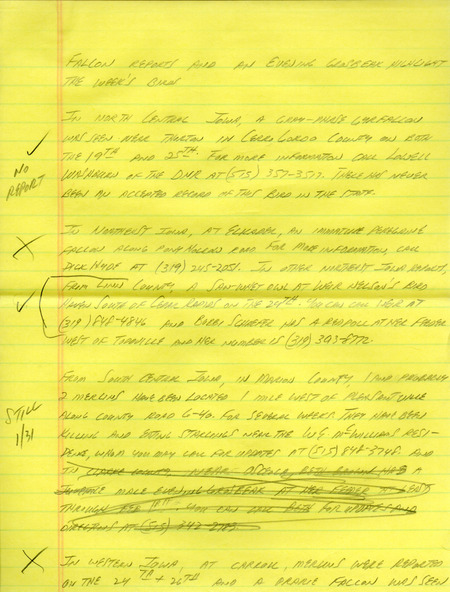 FALCON REPORTS AND AN EVENING GROSBEAK HIGHLIGHT
THE WEEK'S BIRD
IN NORTH CENTRAL IOWA, A GRAY-PHASE GYRFALCON
WAS SEEN NEAR IN CERRO GORDO COUNTY ON BOTH
THE 19TH AND 25TH. FOR MORE INFORMATION CALL LOWELL
OF THE DNR AT (515) 357-3517. THERE HAS NEVER
BEEN AN ACCEPTED RECORD OF THIS BIRD IN THE STATE.
NO
REPORT
IN NORTHEAST IOWA, AT ELKADER, AN IMMATURE PEREGRINE
FALCON ALONG HOLLOW ROAD FOR MORE INFORMATION, CALL
DICK AT (319) 245-2051. IN OTHER NORTHEAST IOWA REPORTS,
FROM LINN COUNTY, A SAW-WHET OWL AT WEIR NELSON'S BIRD
HAVEN SOUTH OF CEDAR RAPIDS ON THE 24TH. YOU CAN CALL WEIR AT
(319) 848-4846 AND HAS A REDPOLL AT HER FEEDER
WEST OF AND HER NUMBER IS (319) 393-8772.
FROM SOUTH CENTRAL IOWA, IN MARION COUNTY, 1 AND PROBABLY
2 MERLINS HAVE BEEN LOCATED 1 MILE WEST OF PLEASANTVILLE
ALONG COUNTY ROAD G-40. FOR SEVERAL WEEKS THEY HAVE BEEN
KILLING AND EATING STARLINGS NEAR THE MCWILLIAMS RESI-
DENCE, WHOM YOU MAY CALL FOR UPDATES AT (515) 848-3748. AND
STILL
1/31
IN CLARKE COUNTY NEAR OSCEOLA, BETH BROWN HAS A
MALE EVENING GROSBEAK AT HER FEEDER AT LEAST
THROUGH . YOU CAN CALL BETH FOR UPDATES AND
DIRECTIONS AT (515) 342-
IN WESTERN IOWA, AT CARROLL, MERLINS WERE REPORTED
ON THE 24TH + 26TH AND A PRAIRIE FALCON WAS SEEN